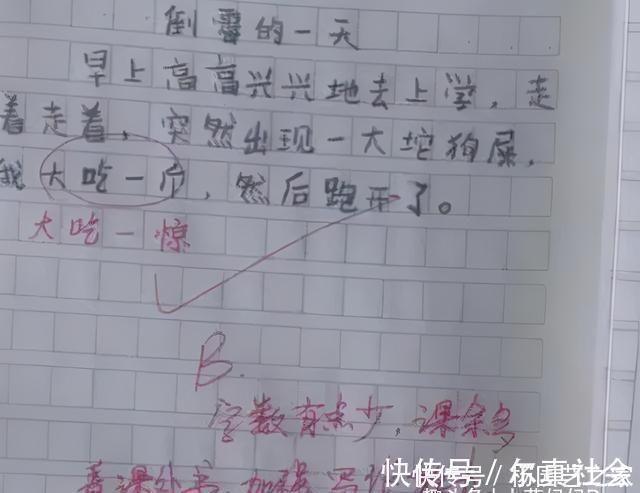 倒霉的一天
早上高高兴兴地去上学，走
着走着，突然出现一大坨狗屎，
我大吃一斤，然后跑开了。
大吃一惊
B.
字数有点少，课余多
看课外书，加强写作
快传号／乐享社会